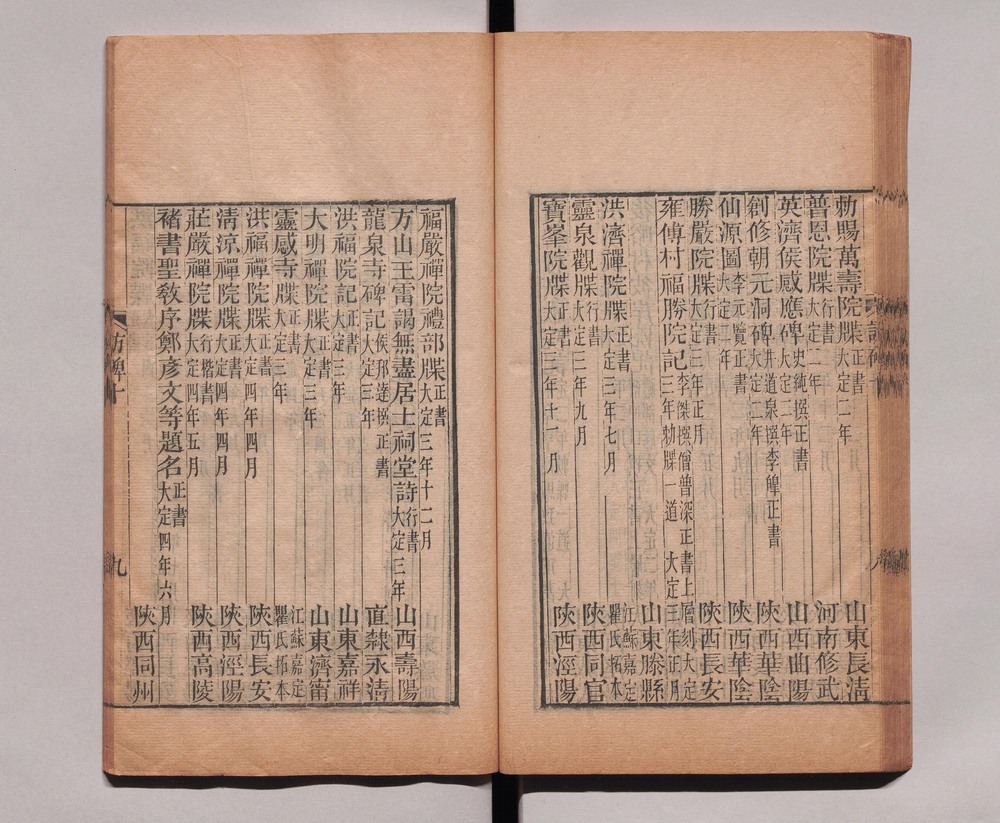 勅賜萬壽院牒正書大定二年 山東長淸
普恩院牒行書大定二年 河南修武
英濟侯感應碑史純撰正書大定二年 山西曲陽
創修朝元洞碑井道泉撰李皥正書大定二年 陝西華陰
仙源圖李元覽正書大定二年 陝西華陰
勝嚴院牒行書大定三年正月 陝西長安
雍傳村福勝院記李傑撰僧普深正書上層刻大定三年勑牒一道 大定三年正月
山東滕縣
洪濟禪院牒正書大定三年七月 江蘇嘉定瞿氏拓本
靈泉觀牒行書大定三年九月 陝西同官
寶峯院牒正書大定三年十一月 陝西涇陽
福嚴禪院禮部牒正書大定三年十二月
方山王雷謁無盡居士祠堂詩行書大定三年 山西壽陽
龍泉寺碑記侯邦達撰正書大定三年 直隸永淸
洪福院記正書大定三年 山東嘉祥
大明禪院牒正書大定三年 山東濟甯
靈感寺牒正書大定三年 江蘇嘉定瞿氏拓本
洪福禪院牒正書大定四年四月 陝西長安
淸涼禪院牒正書大定四年四月 陝西涇陽
莊嚴禪院牒行楷書大定四年五月 陝西高陵
褚書聖敎序鄭彥文等題名正書大定四年六月
陝西同州
訪碑十
九